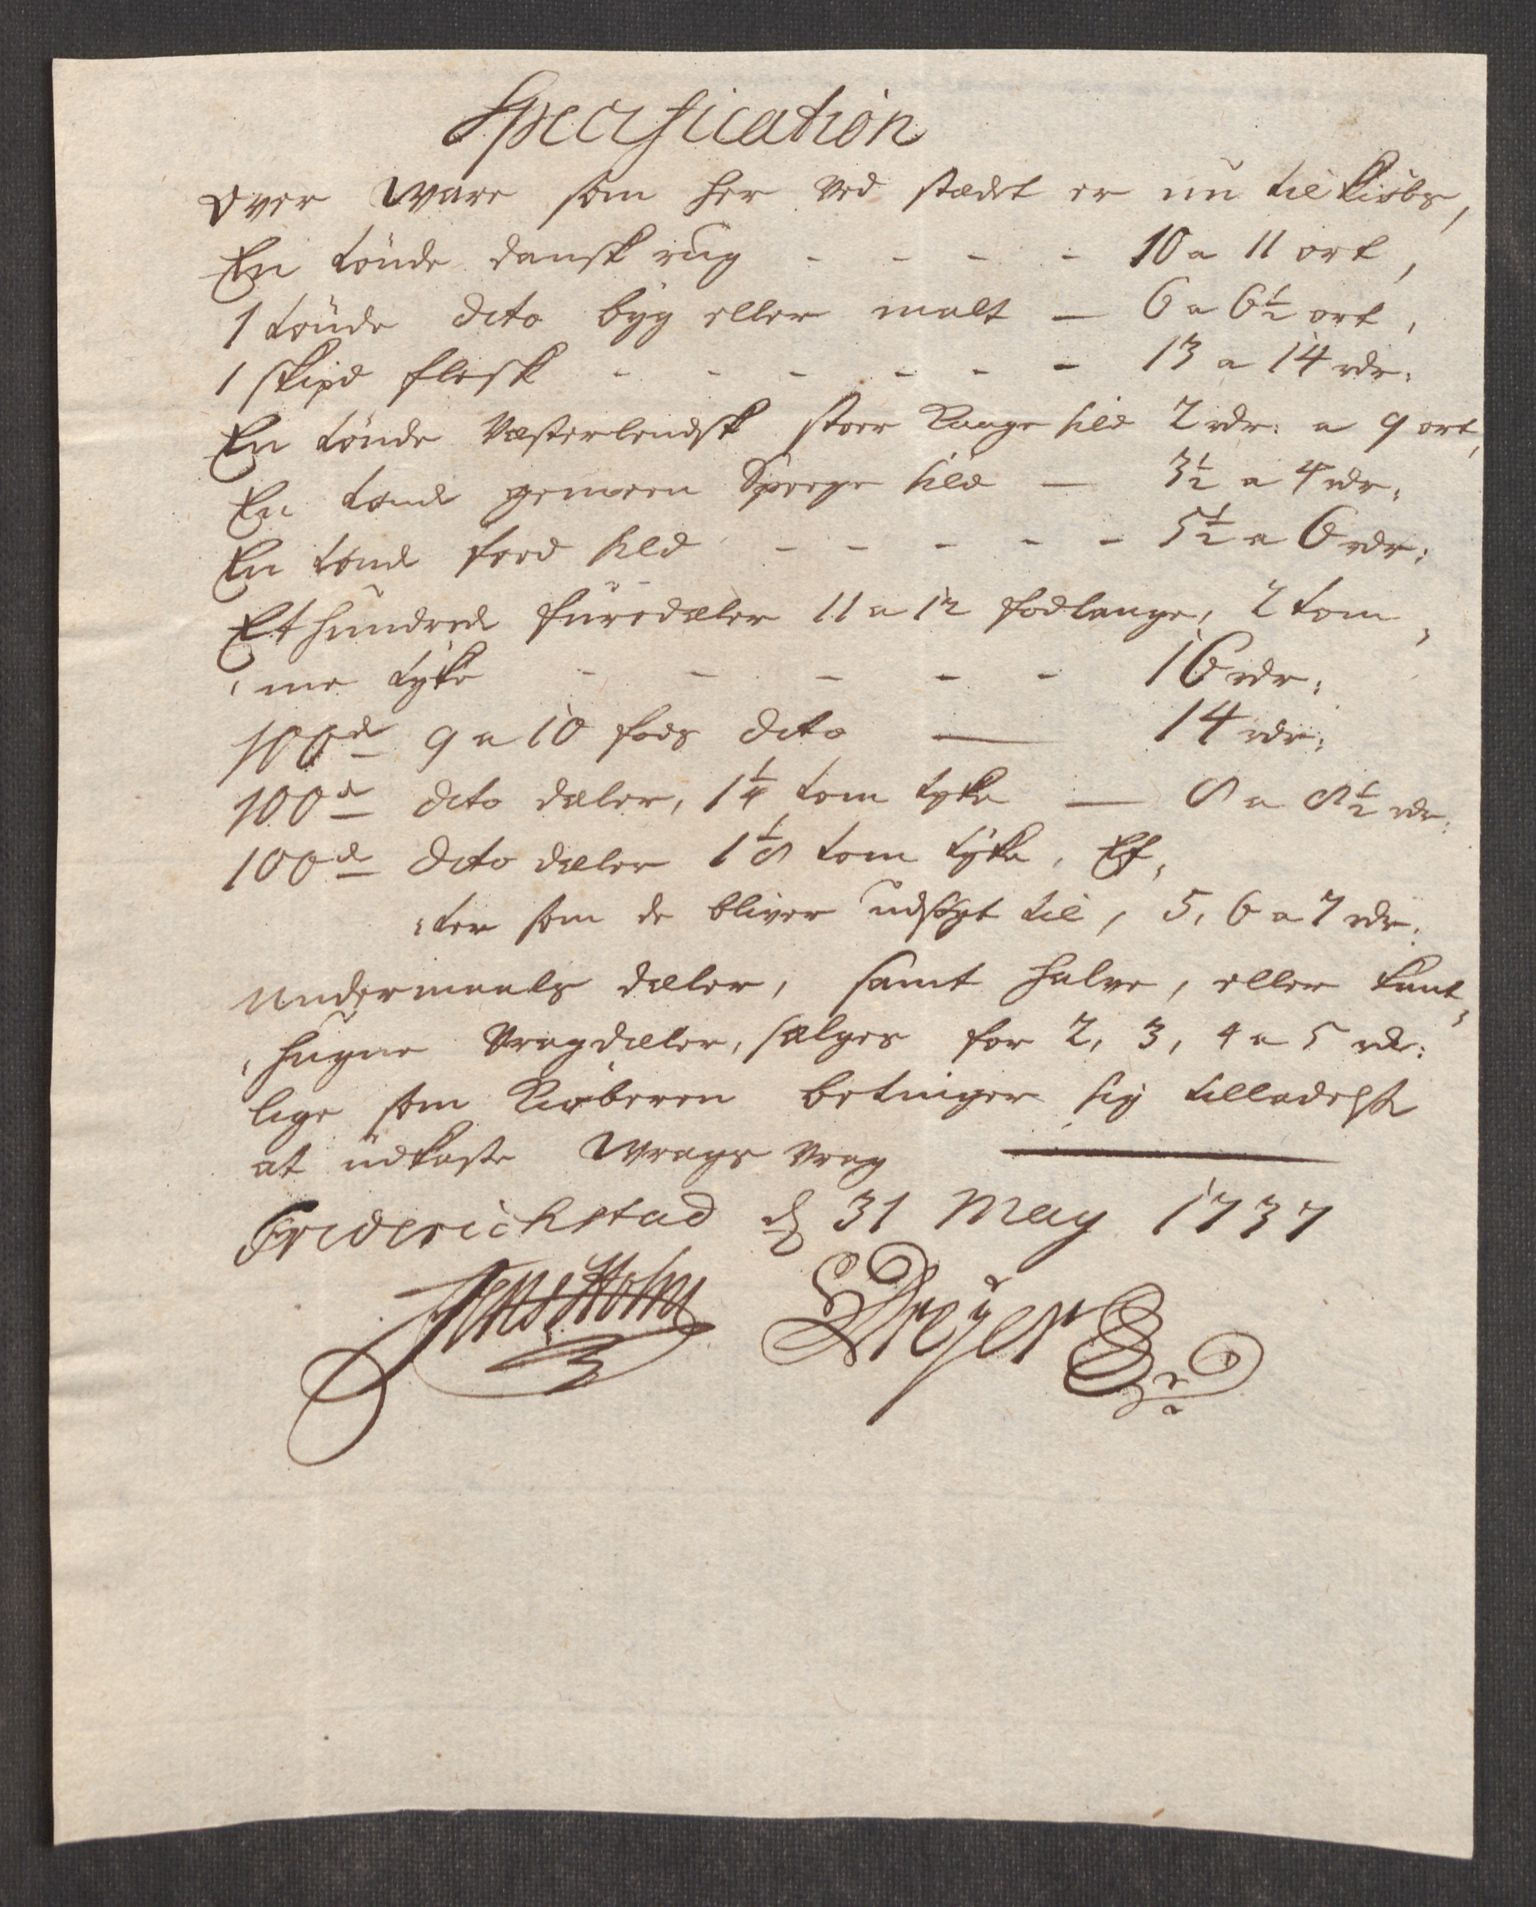 Specification
Over Ware som her ved stædet er nu til kiøbs,
En tønde dansk rug - - - - 10 a 11 ort,
1 tønde dito byg eller malt — 6 a 6½ ort,
1 skipd flesk - - - - - - 13 a 14 rdr:
En tønde Vesterlendsk stoer Kaage sild 2 rdr: a 9 ort,
En tønde gemeen Speege sild — 3½ a 4 rdr:
En tønde sild - - - - - 5½ a 6 rdr:
Et hundrede furedæler 11 a 12 fodlange, 2 tom,
,me tyke - - - - - 16 rdr:
100de 9 a 10 fods dito — 14 rdr:
100de dito dæler, 1¼ tom tyke — 8 a 8½ rdr:
100de dito dæler 1⅛ tom tyke, Ef,
,ter som de bliver udsögt til, 5, 6 a 7 rdr:
Undermaals dæler, samt halve, eller kant,
,hugne Vragdæler, sælges for 2, 3, 4 a 5 rdr:
lige som Kiøberen betinger sig tilladelse
at udkaste Wrags Vrag
Friderichstad d 31 May 1737
Jens Holm Dreyer